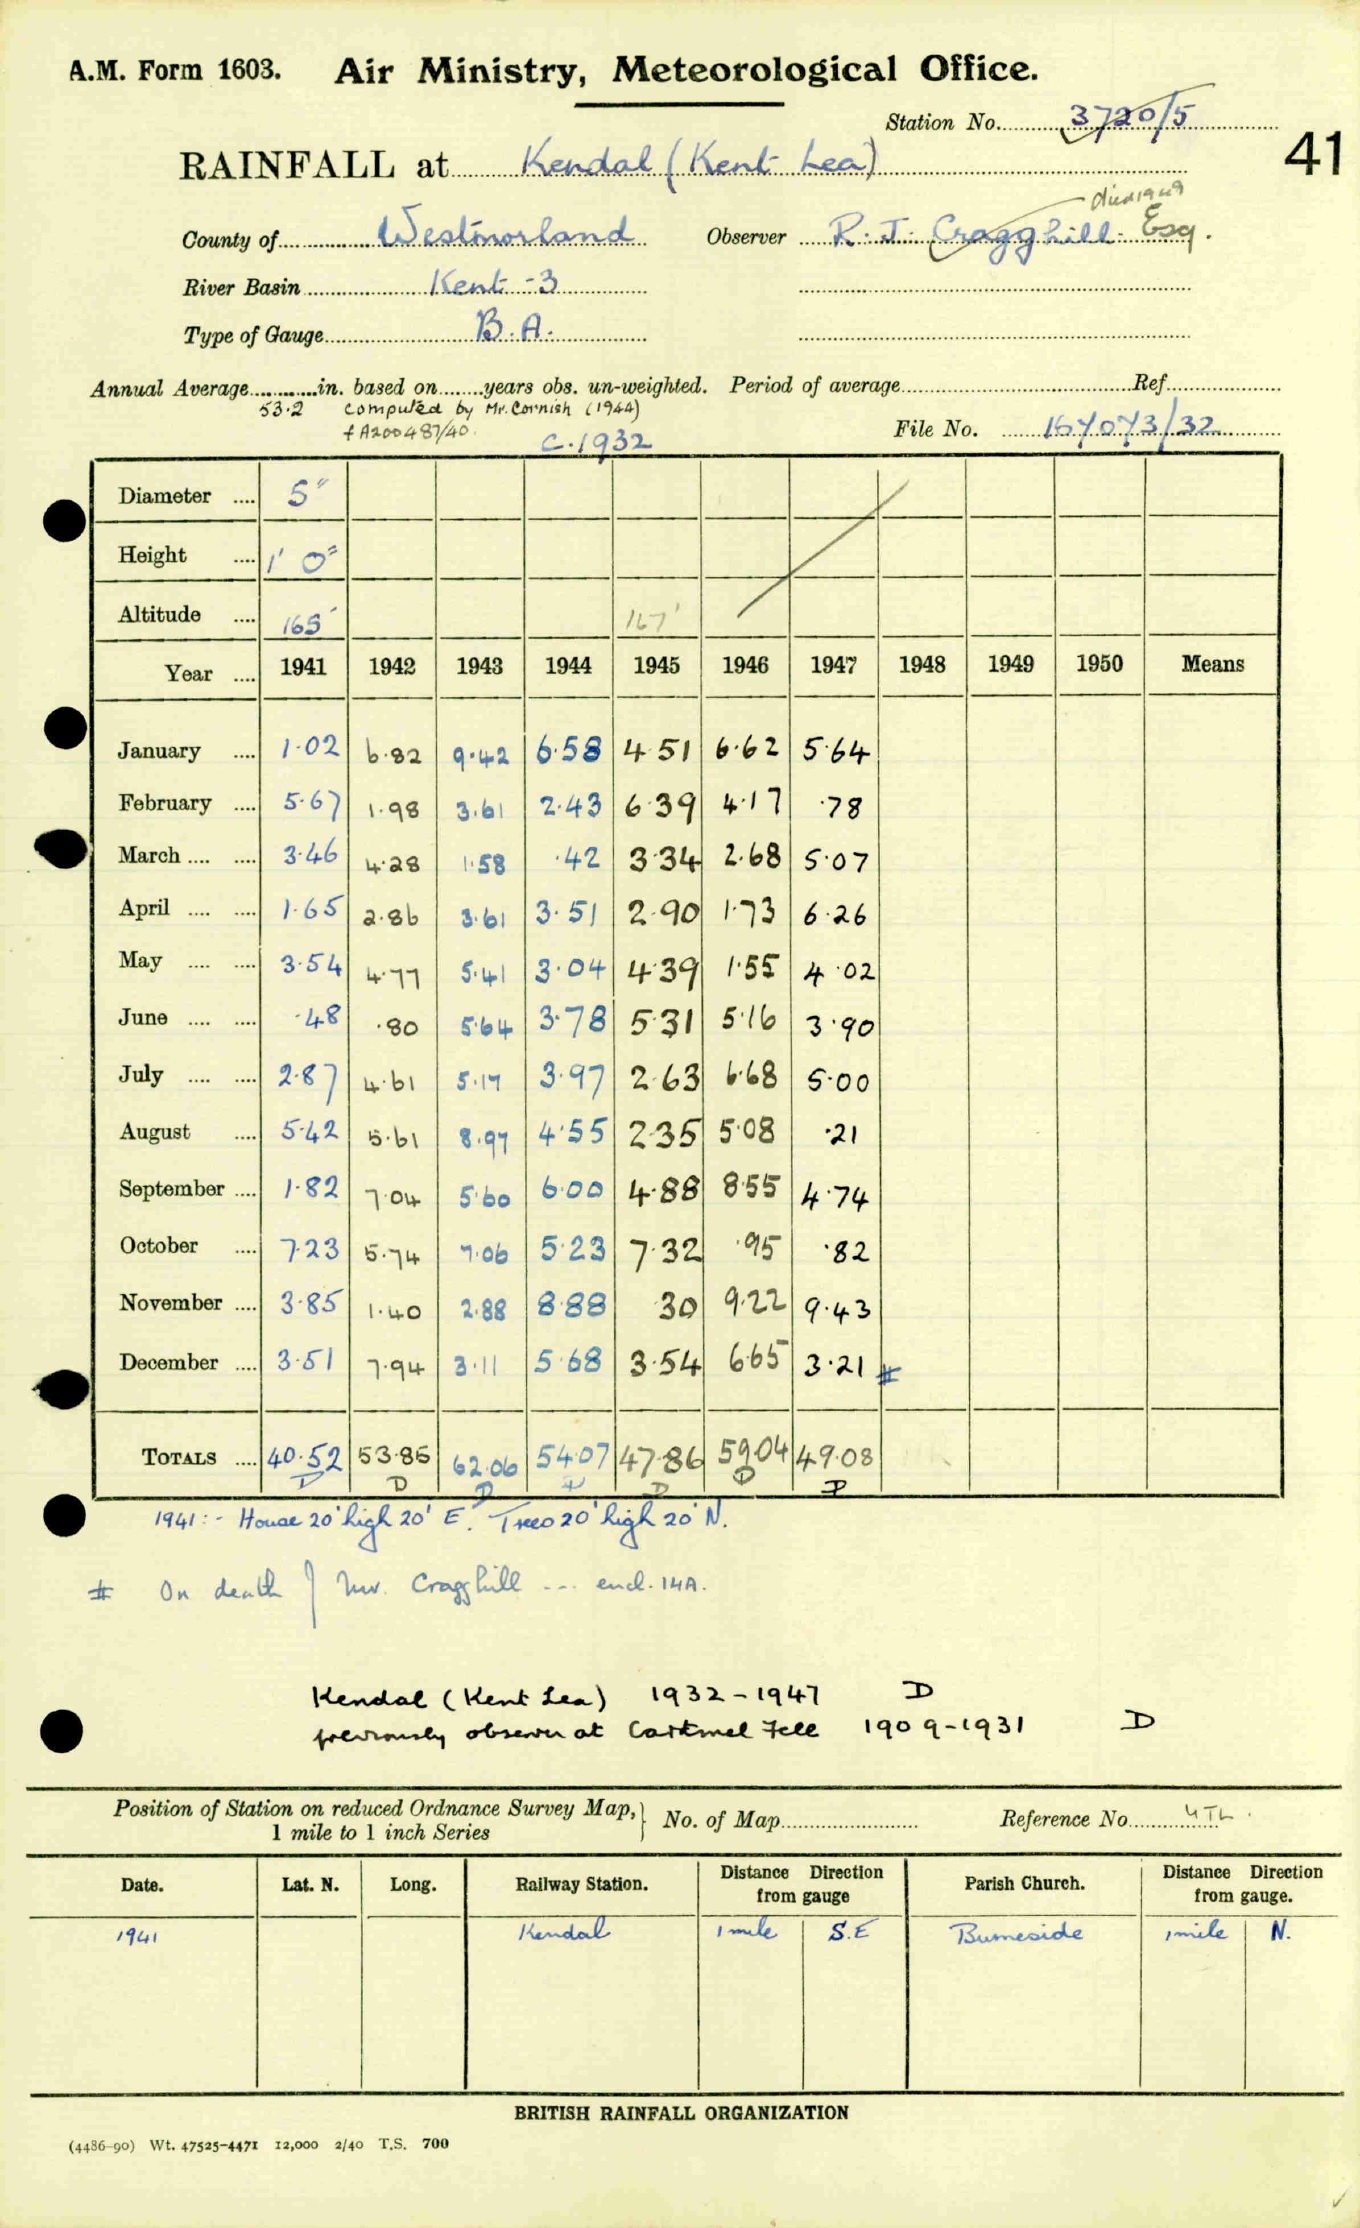 A.M. Form 1603. Air Ministry, Meteorological Office.
Station No. 3720/5
41
RAINFALL at Kendal (Kent Lea)
died 1949
County of Westmorland Observer R. J. Cragghill Esq.
River Basin Kent -3
Type of Gauge B.A.
Annual Average in. based on years obs. un-weighted. Period of average Ref
53.2 computed by Mr. Cornish (1944)
f A200487/40. C.1932 File No. 167073/32
Diameter 5"
Height 1' 0"
Altitude 165' 167'
Year 1941 1942 1943 1944 1945 1946 1947 1948 1949 1950 Means
January 1.02 6.82 9.42 6.58 4.51 6.62 5.64
February 5.67 1.98 3.61 2.43 6.39 4.17 .78
March 3.46 4.28 1.58 .42 3.34 2.68 5.07
April 1.65 2.86 3.61 3.51 2.90 1.73 6.26
May 3.54 4.77 5.41 3.04 4.39 1.55 4.02
June .48 .80 5.64 3.78 5.31 5.16 3.90
July 2.87 4.61 5.17 3.97 2.63 6.68 5.00
August 5.42 5.61 8.97 4.55 2.35 5.08 .21
September 1.82 7.04 5.60 6.00 4.88 8.55 4.74
October 7.23 5.74 7.06 5.23 7.32 .95 .82
November 3.85 1.40 2.88 8.88 .30 9.22 9.43
December 3.51 7.94 3.11 5.68 3.54 6.65 3.21 #
TOTALS 40.52 53.85 62.06 54.07 47.86 59.04 49.08
D D D D D D D
1941:- House 20' high 20' E. Trees 20' high 20' N.
# On death of Mr. Cragghill --- encl. 14A.
Kendal (Kent Lea) 1932-1947 D
previously observer at Cartmel Fell 1909-1931 D
Position of Station on reduced Ordnance Survey Map, 1 mile to 1 inch Series No. of Map Reference No. UTL.
Date. Lat. N. Long. Railway Station. Distance Direction from gauge Parish Church. Distance Direction from gauge.
1941 Kendal 1 mile S.E Burneside 1 mile N.
BRITISH RAINFALL ORGANIZATION
(4486-90) Wt. 47525-4471 12,000 2/40 T.S. 700